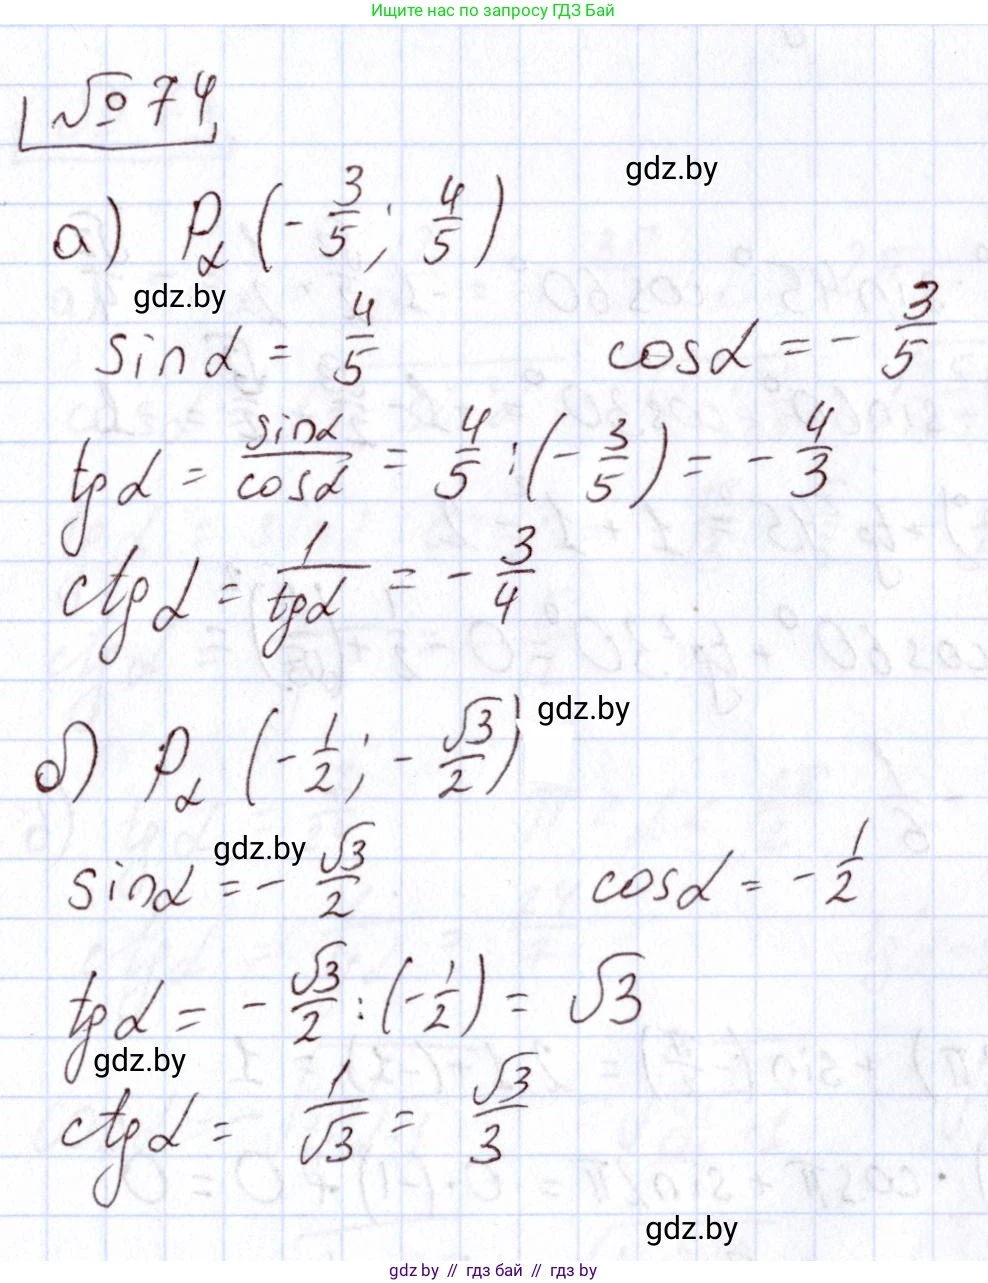 Ищите нас по запросу ГДЗ Бай
№ 74
gdz.by
а) Pα (-3/5; 4/5)
gdz.by
sinα = 4/5 cosα = -3/5
tgα = sinα/cosα = 4/5 : (-3/5) = -4/3
ctgα = 1/tgα = -3/4
gdz.by
б) Pα (-1/2; -√3/2)
gdz.by
sinα = -√3/2 cosα = -1/2
tgα = -√3/2 : (-1/2) = √3
gdz.by
ctgα = 1/√3 = √3/3
gdz.by
gdz.by // гдз бай // гдз by